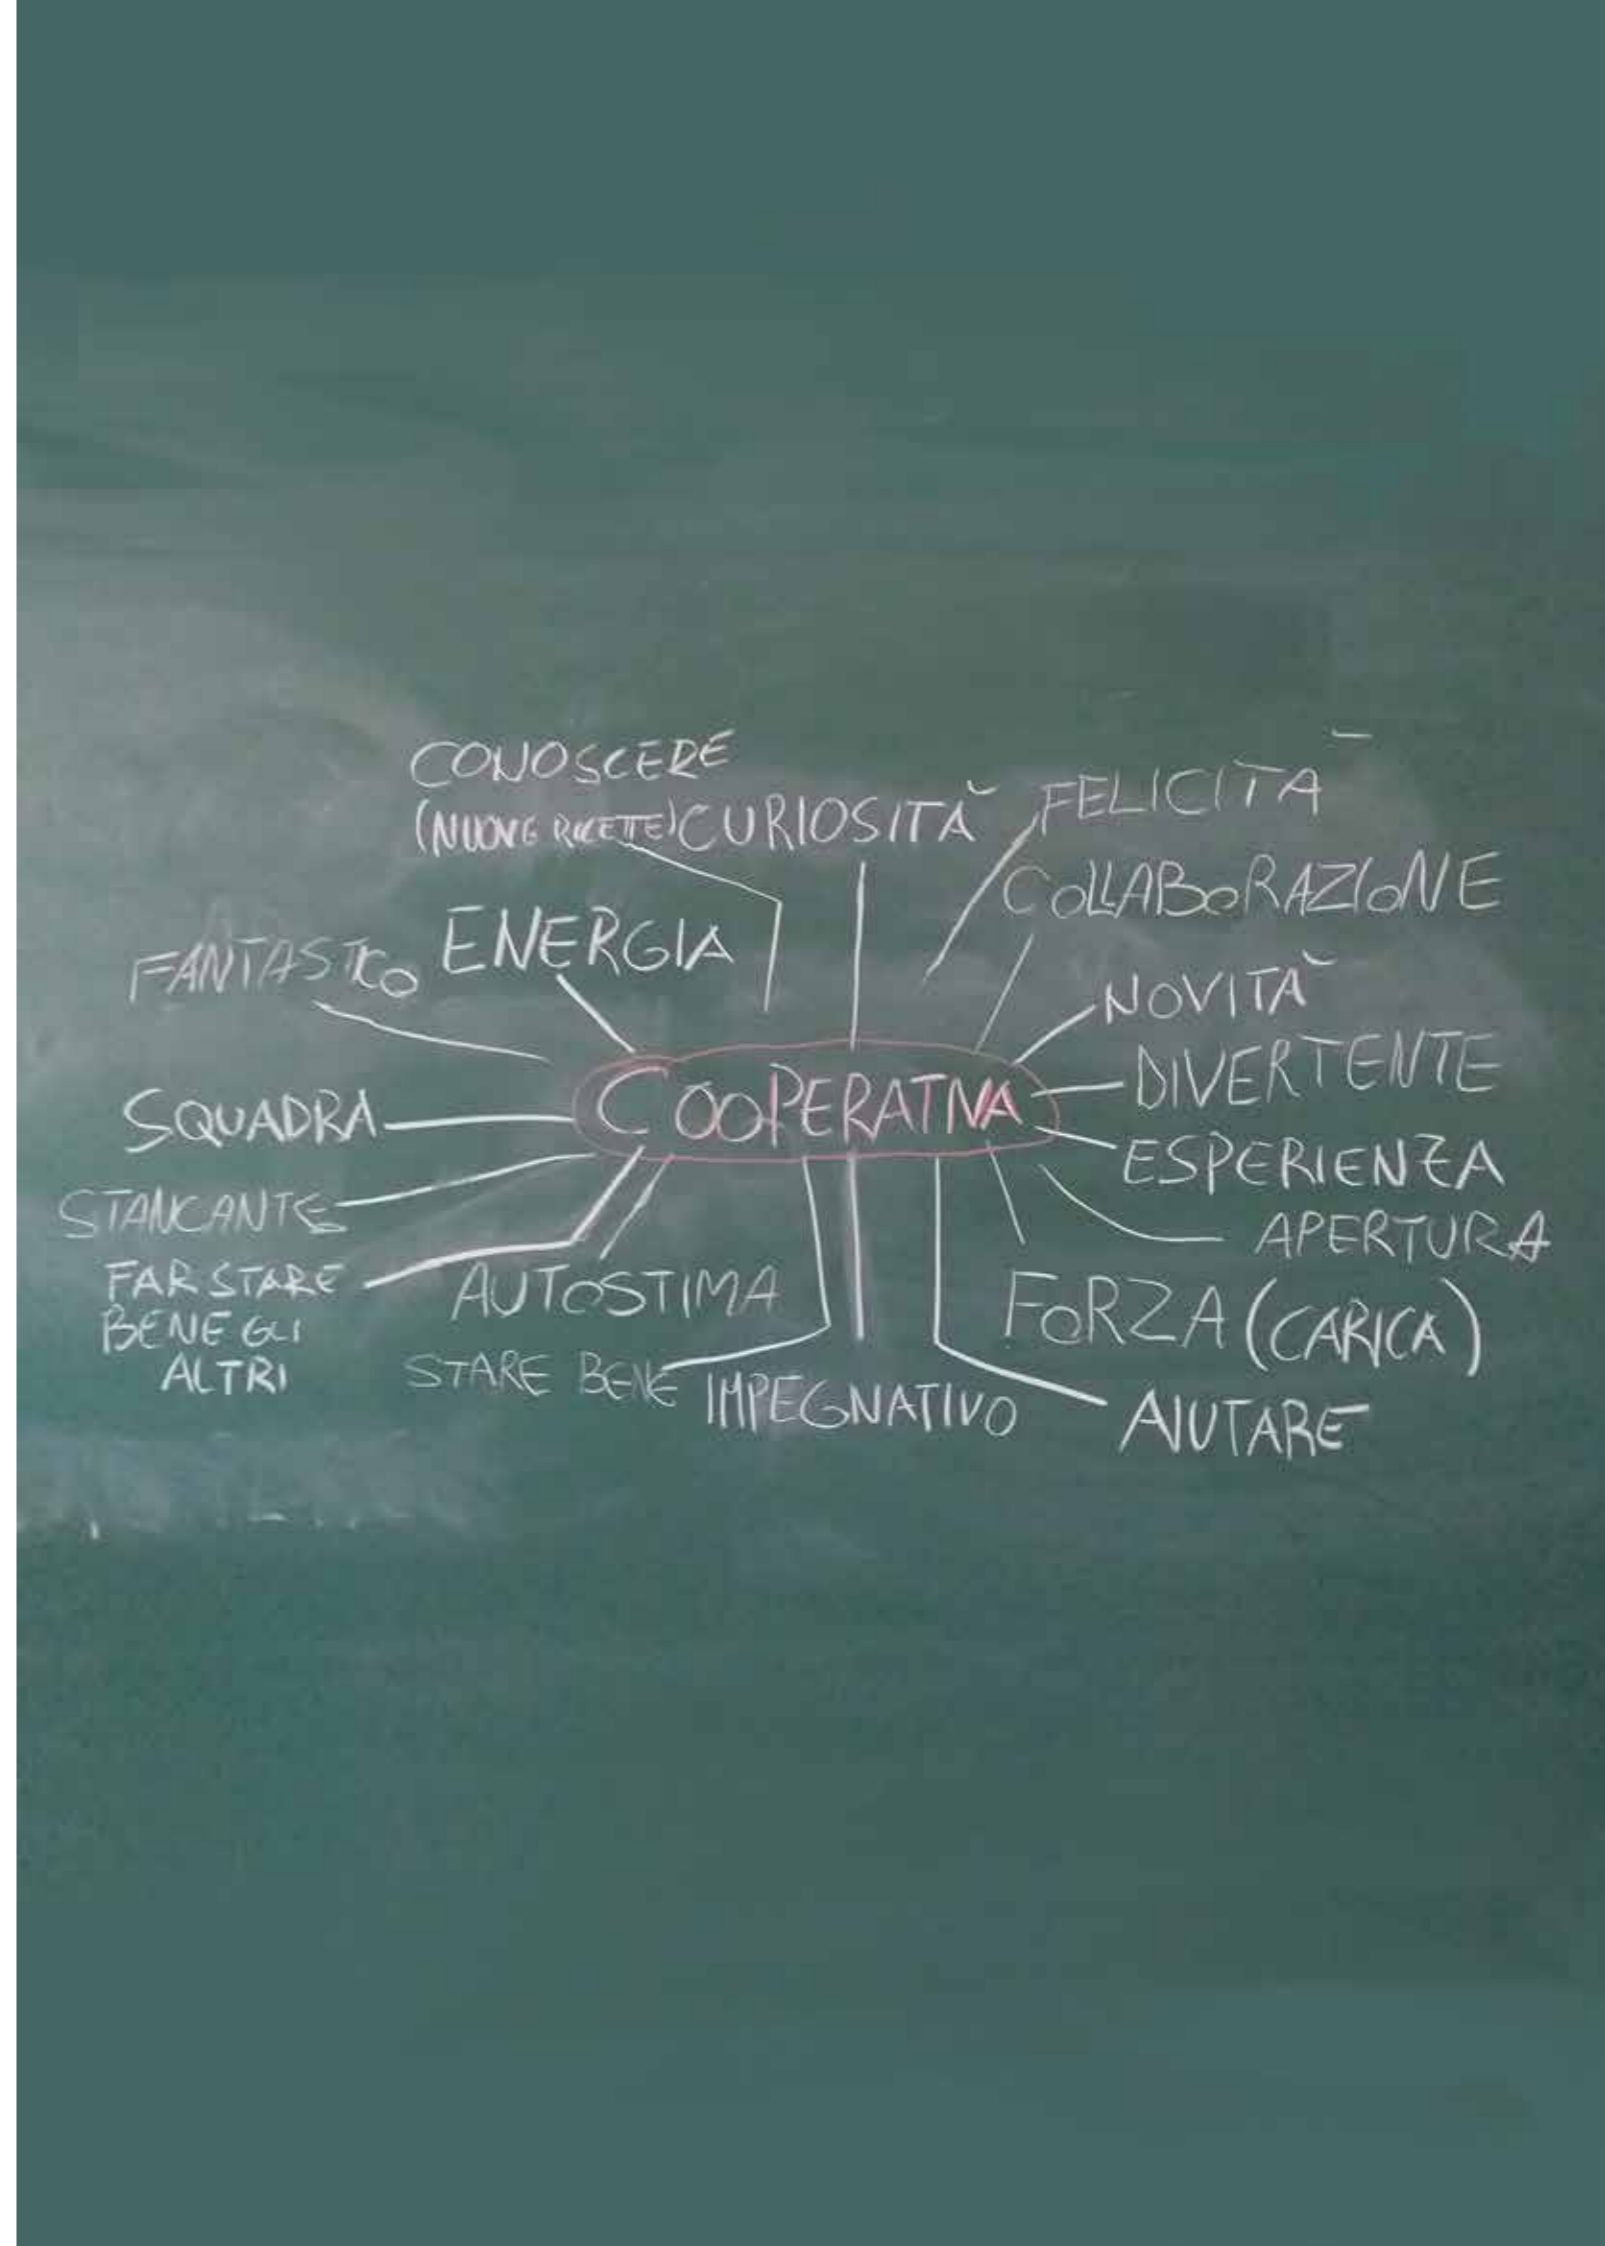 CONOSCERE
(NUOVE RICETTE) CURIOSITÀ
FELICITÀ
COLLABORAZIONE
FANTASTICO
ENERGIA
NOVITÀ
DIVERTENTE
SQUADRA
COOPERATIVA
ESPERIENZA
STANCANTE
APERTURA
FAR STARE
BENE GLI
ALTRI
AUTOSTIMA
FORZA (CARICA)
STARE BENE
IMPEGNATIVO
AIUTARE